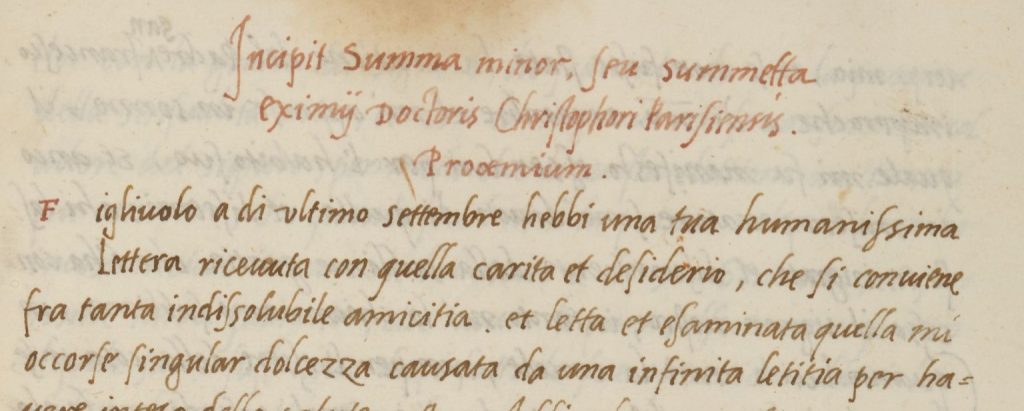 Incipit Summa minor, seu summetta
eximij Doctoris Christophori Parisiensis.
Proœmium.
Figliuolo a di ultimo settembre hebbi una tua humanissima
Lettera riceuuta con quella carita et desiderio, che si conviene
fra tanta indissolubile amicitia. et letta et esaminata quella mi
occorse singular dolcezza causata da una infinita letitia per ha=